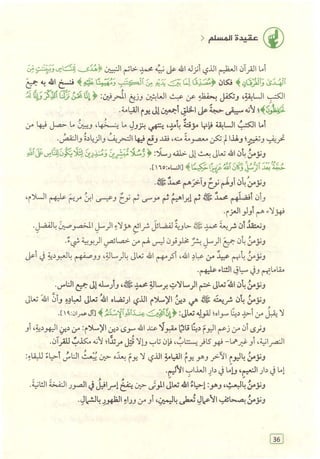 عقيدة المسلم
أما القرآن العظيم الذي أنزله الله على نبيه محمد خاتم النبيين ﴿هُدًى لِلنَّاسِ وَبَيِّنَاتٍ مِنَ
الْهُدَى وَالْفُرْقَانِ﴾ فكان ﴿مُصَدِّقًا لِمَا بَيْنَ يَدَيْهِ مِنَ الْكِتَابِ وَمُهَيْمِنًا عَلَيْهِ﴾ فنسخ الله به جميع
الكتب السابقة، وتكفل بحفظه عن عبث العابثين وزيغ المحرفين: ﴿إِنَّا نَحْنُ نَزَّلْنَا الذِّكْرَ وَإِنَّا لَهُ
لَحَافِظُونَ﴾ لأنه سيبقى حجة على الخلق أجمعين إلى يوم القيامة.
أما الكتب السابقة فإنها مؤقتة بأمد، ينتهي بنزول ما ينسخها، ويبين ما حصل فيها من
تحريف وتغيير؛ ولهذا لم تكن معصومة منه، فقد وقع فيها التحريف والزيادة والنقص.
ونؤمن بأن الله تعالى بعث إلى خلقه رسلاً: ﴿رُسُلًا مُبَشِّرِينَ وَمُنْذِرِينَ لِئَلَّا يَكُونَ لِلنَّاسِ عَلَى اللَّهِ
حُجَّةٌ بَعْدَ الرُّسُلِ وَكَانَ اللَّهُ عَزِيزًا حَكِيمًا﴾ [النساء:١٦٥].
ونؤمن بأن أولهم نوح وآخرهم محمد ﷺ.
وأن أفضلهم محمد ﷺ ثم إبراهيم ثم موسى ثم نوح وعيسى ابن مريم عليهم السلام،
فهؤلاء هم أولو العزم.
ونعتقد أن شريعة محمد ﷺ حاوية لفضائل شرائع هؤلاء الرسل المخصوصين بالفضل.
ونؤمن بأن جميع الرسل بشر مخلوقون ليس لهم من خصائص الربوبية شيء.
ونؤمن بأنهم عبيد من عباد الله، أكرمهم الله تعالى بالرسالة، ووصفهم بالعبودية في أعلى
مقاماتهم وفي سياق الثناء عليهم.
ونؤمن بأن الله تعالى ختم الرسالات برسالة محمد ﷺ، وأرسله إلى جميع الناس.
ونؤمن بأن شريعته ﷺ هي دين الإسلام الذي ارتضاه الله تعالى لعباده وأن الله تعالى
لا يقبل من أحد دينًا سواه؛ لقوله تعالى: ﴿إِنَّ الدِّينَ عِنْدَ اللَّهِ الْإِسْلَامُ﴾ [آل عمران:١٩].
ونرى أن من زعم اليوم دينًا قائمًا مقبولًا عند الله سوى دين الإسلام: من دين اليهودية، أو
النصرانية، أو غيرهما- فهو كافر يستتاب، فإن تاب وإلا قتل مرتدًا؛ لأنه مكذب للقرآن.
ونؤمن باليوم الآخر وهو يوم القيامة الذي لا يوم بعده، حين يُبعث الناس أحياء للبقاء:
إما في دار النعيم، وإما في دار العذاب الأليم.
ونؤمن بالبعث، وهو: إحياء الله تعالى الموتى حين ينفخ إسرافيل في الصور النفخة الثانية.
ونؤمن بصحائف الأعمال تُعطى باليمين، أو من وراء الظهور بالشمال.
36